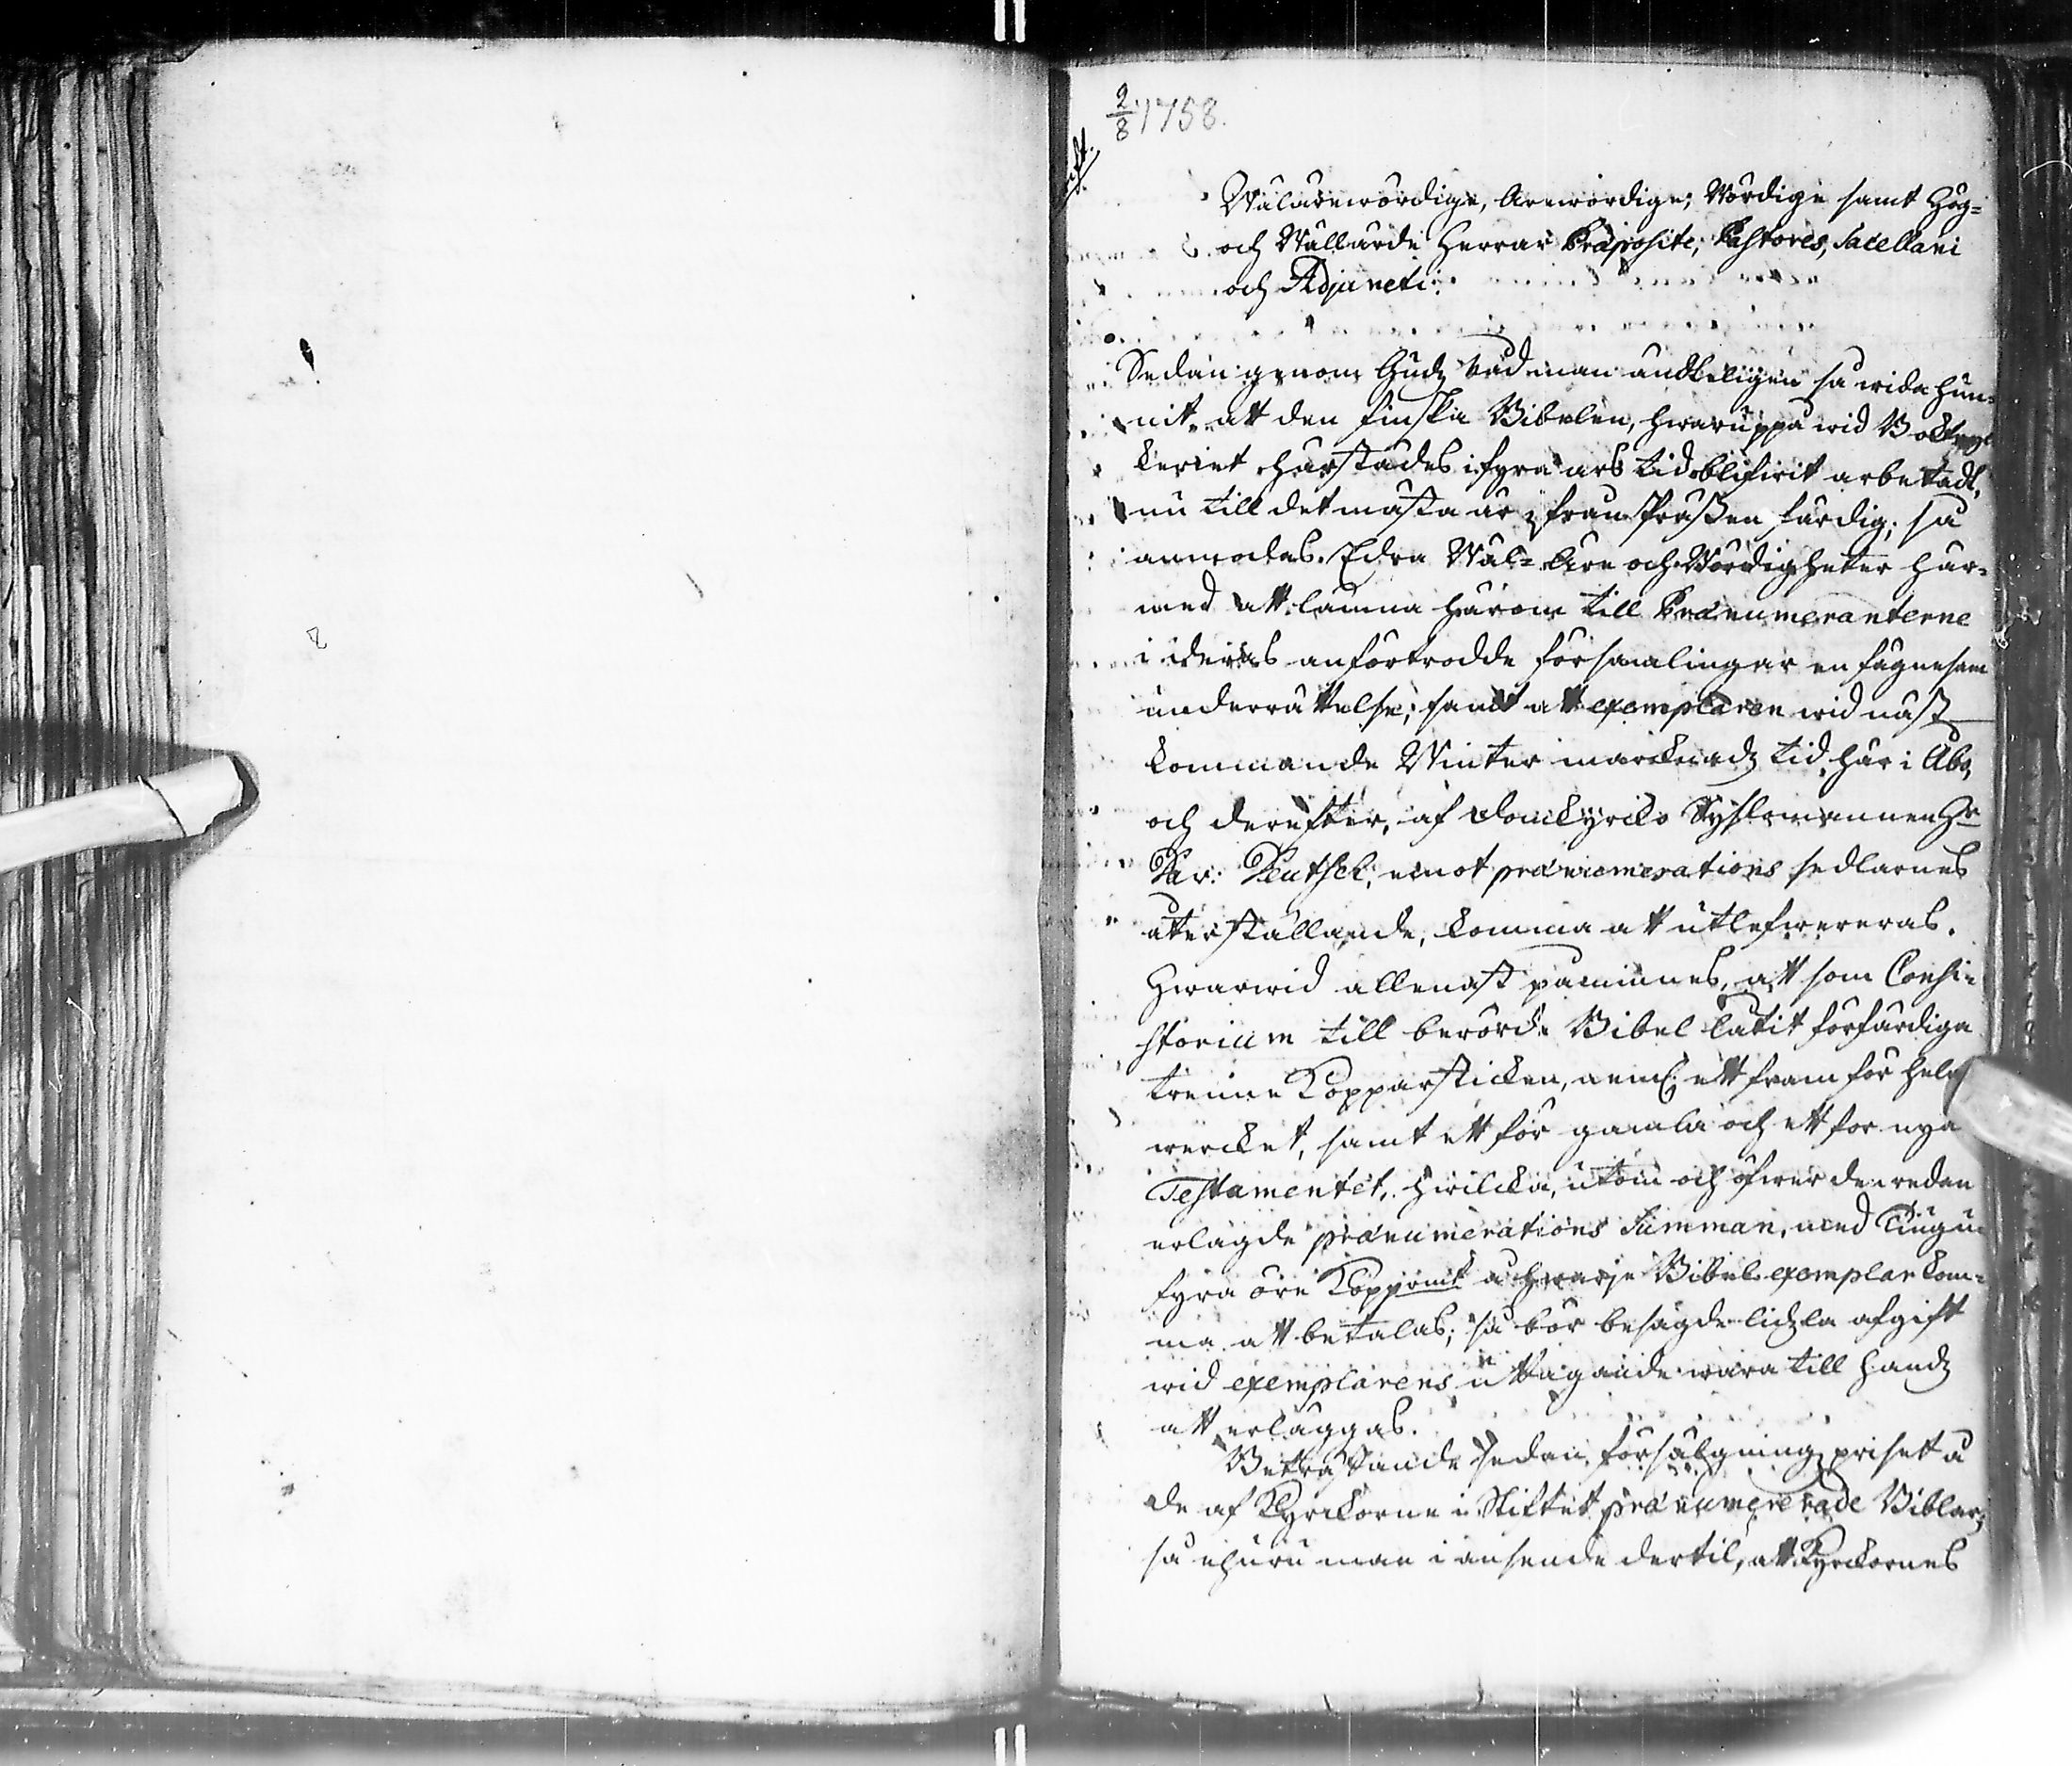 2/8 1758.
Wälärewördige, Ärewördige; Wördige samt Hög-
och Wällärde Herrar Præposite, Pastores, Sacellani
och Adjuncti.
Sedan genom Gudz nåd man ändteligen så wida hun-
nit, att den finska Bibelen, hwaruppå wid Boktryc
keriet härstädes i fyra års tid blifwit arbetadt,
nu till det mästa är ifrån Prässen färdig; så
anmodas Edra Wäl- Äre och Wördigheter här-
med att lämna härom till Prænumeranterne
i deras anförtrodde församlingar en fägnesam
underrättelse; samt att exemplaren wid näst
kommande Winter marcknadz tid här i Åbo,
och derefter, af domkyrcko Sysslomannen Hr
Dav: Deutsch, emot prænumerations sedlarnes
återställande, komma att utlefwereras.
Hwarwid allenast påminnes, att som Consi-
storium till berörde Bibel låtit förfärdiga
trenne Kopparsticken, neml. ett fram för hela
wercket, samt ett för gamla och ett för nya
Testamentet, hwilcka, utom och öfwer den redan
erlagde prænumerations Summan, med Tiugu-
fyra öre Koppmt å hwarje Bibel exemplar kom-
ma att betalas; så bör besagde lidzla afgift
wid exemplarens uttagande wara till handz
att erläggas.
Beträffande sedan försälgning priset å
de af Kyrckorne i Stiftet prænumererade Biblar;
så ehuru man i anseende dertil, att Kyrckornes